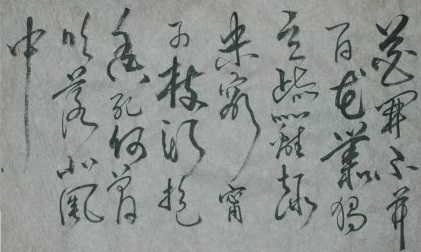 花開不並
百花叢獨
立疏籬趣
未窮甯
可枝頭抱
香死何曾
吹落北風
中